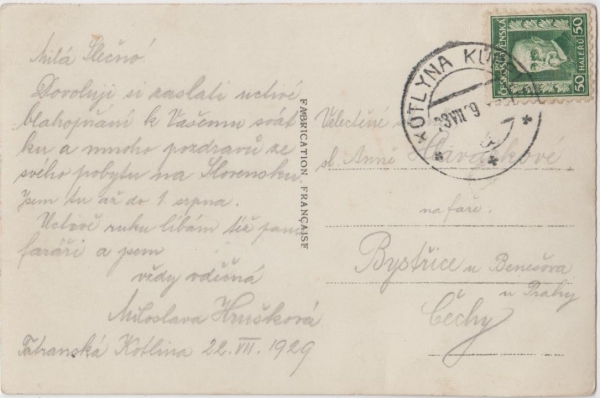 Milá Slečno!
Dovoluji si zaslati uctivé
blahopřání k Vašemu svát-
ku a mnoho pozdravů ze
svého pobytu na Slovensku.
Jsem tu až do 1 srpna.
Uctivě ruku líbám též panu
faráři a jsem
vždy vděčná
Miloslava Hrušková
Tatranská Kotlina 22. VII. 1929
FABRICATION FRANÇAISE
KOTLYNA
ČESKOSLOVENSKÁ
50 HALÉŘŮ 50
Velectěné
sl. Anně
na faře.
Bystřice u Benešova
u Prahy
Čechy